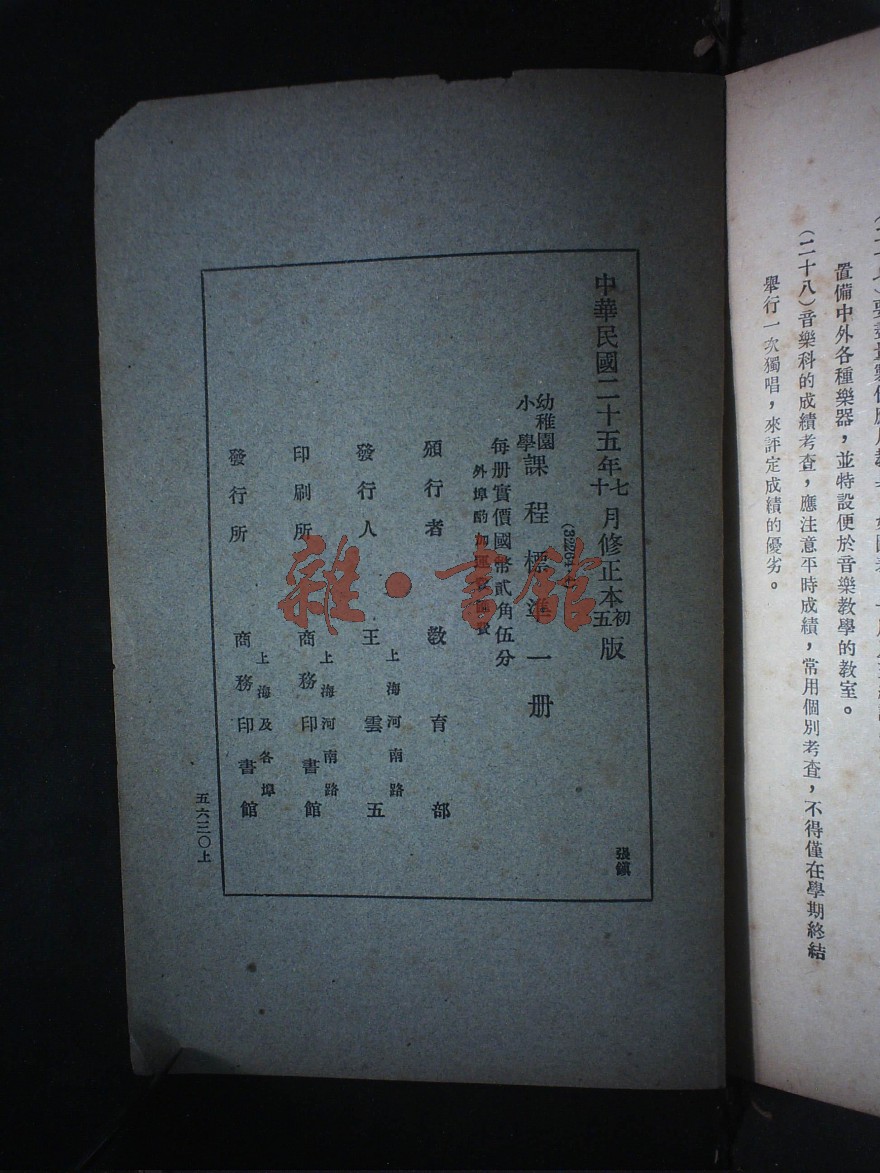 置備中外各種樂器，並特設便於音樂教學的教室。
（二十八）音樂科的成績考查，應注意平時成績，常用個別考查，不得僅在學期終結
舉行一次獨唱，來評定成績的優劣。
中華民國二十五年七月修正本初版
十五
幼稚園
小學
課程標準一册
每册實價國幣貳角伍分
外埠酌加運
頒行者 教育部
發行人 王雲五
上海河南路
印刷所 商務印書館
上海河南路
發行所 商務印書館
上海及各埠
張鎮
五六二〇上
雜·書館